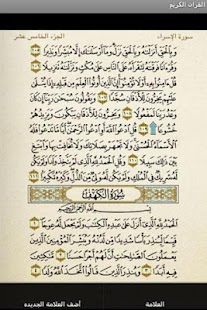 القران الكريم
سورة الإسراء الجزء الخامس عشر
وَبِالْحَقِّ أَنزَلْنَاهُ وَبِالْحَقِّ نَزَلَ وَمَا أَرْسَلْنَاكَ إِلَّا مُبَشِّرًا وَنَذِيرًا
١٠٥ وَقُرْآنًا فَرَقْنَاهُ لِتَقْرَأَهُ عَلَى النَّاسِ عَلَىٰ مُكْثٍ وَنَزَّلْنَاهُ تَنزِيلًا ١٠٦
قُلْ آمِنُوا بِهِ أَوْ لَا تُؤْمِنُوا إِنَّ الَّذِينَ أُوتُوا الْعِلْمَ مِن قَبْلِهِ إِذَا يُتْلَىٰ
عَلَيْهِمْ يَخِرُّونَ لِلْأَذْقَانِ سُجَّدًا ١٠٧ وَيَقُولُونَ سُبْحَانَ رَبِّنَا إِن كَانَ وَعْدُ
رَبِّنَا لَمَفْعُولًا ١٠٨ وَيَخِرُّونَ لِلْأَذْقَانِ يَبْكُونَ وَيَزِيدُهُمْ خُشُوعًا ١٠٩
قُلِ ادْعُوا اللَّهَ أَوِ ادْعُوا الرَّحْمَٰنَ أَيًّا مَّا تَدْعُوا فَلَهُ الْأَسْمَاءُ الْحُسْنَىٰ
وَلَا تَجْهَرْ بِصَلَاتِكَ وَلَا تُخَافِتْ بِهَا وَابْتَغِ بَيْنَ ذَٰلِكَ سَبِيلًا ١١٠
وَقُلِ الْحَمْدُ لِلَّهِ الَّذِي لَمْ يَتَّخِذْ وَلَدًا وَلَمْ يَكُن لَّهُ شَرِيكٌ فِي
الْمُلْكِ وَلَمْ يَكُن لَّهُ وَلِيٌّ مِّنَ الذُّلِّ وَكَبِّرْهُ تَكْبِيرًا ١١١
سُورَةُ الْكَهْفِ
بِسْمِ اللَّهِ الرَّحْمَٰنِ الرَّحِيمِ
الْحَمْدُ لِلَّهِ الَّذِي أَنزَلَ عَلَىٰ عَبْدِهِ الْكِتَابَ وَلَمْ يَجْعَل لَّهُ عِوَجًا ١
قَيِّمًا لِّيُنذِرَ بَأْسًا شَدِيدًا مِّن لَّدُنْهُ وَيُبَشِّرَ الْمُؤْمِنِينَ الَّذِينَ
يَعْمَلُونَ الصَّالِحَاتِ أَنَّ لَهُمْ أَجْرًا حَسَنًا ٢ مَّاكِثِينَ
فِيهِ أَبَدًا ٣ وَيُنذِرَ الَّذِينَ قَالُوا اتَّخَذَ اللَّهُ وَلَدًا ٤
العلامة
أضف العلامة الجديده